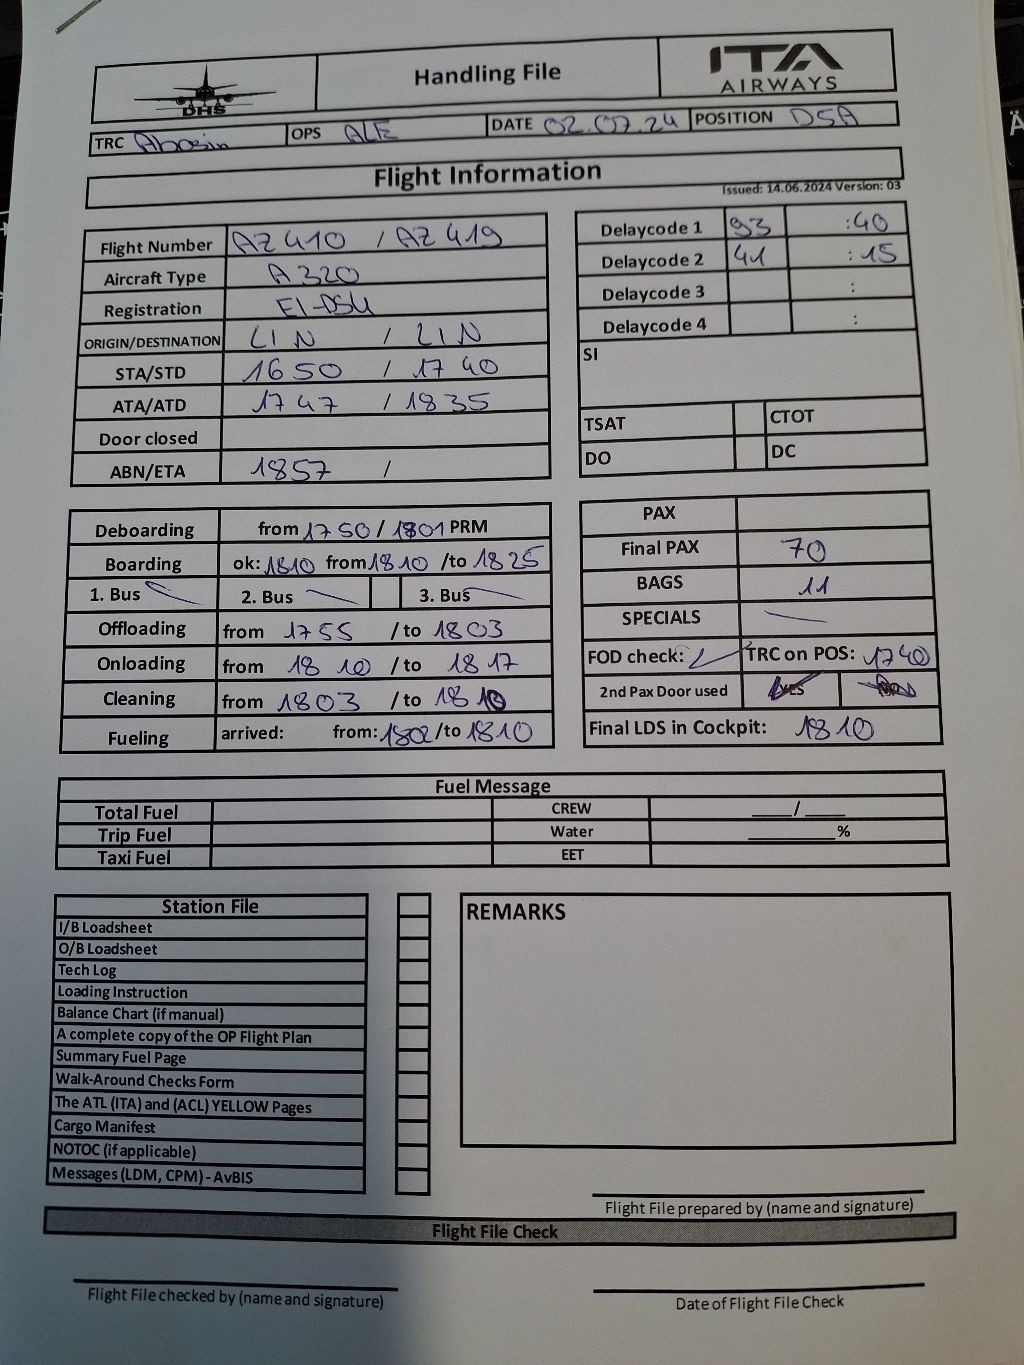 DHS
Handling File
ITA
AIRWAYS
TRC Abasin OPS ALE DATE 02.07.24 POSITION D5A
Flight Information
Issued: 14.06.2024 Version: 03
Flight Number AZ 410 / AZ 419
Aircraft Type A 320
Registration EI-DSU
ORIGIN/DESTINATION LIN / LIN
STA/STD 1650 / 1740
ATA/ATD 1747 / 1835
Door closed
ABN/ETA 1857 /
Delaycode 1 93 :40
Delaycode 2 41 :15
Delaycode 3 :
Delaycode 4 :
SI
TSAT CTOT
DO DC
Deboarding from 1750 / 1801 PRM
Boarding ok: 1810 from 1810 /to 1825
1. Bus 2. Bus 3. Bus
Offloading from 1755 /to 1803
Onloading from 1810 /to 1817
Cleaning from 1803 /to 1810
Fueling arrived: from: 1802 /to 1810
PAX
Final PAX 70
BAGS 11
SPECIALS
FOD check: TRC on POS: 1740
2nd Pax Door used YES
Final LDS in Cockpit: 1810
Fuel Message
Total Fuel CREW ____/____
Trip Fuel Water ________%
Taxi Fuel EET
Station File
I/B Loadsheet
O/B Loadsheet
Tech Log
Loading Instruction
Balance Chart (if manual)
A complete copy of the OP Flight Plan
Summary Fuel Page
Walk-Around Checks Form
The ATL (ITA) and (ACL) YELLOW Pages
Cargo Manifest
NOTOC (if applicable)
Messages (LDM, CPM) - AvBIS
REMARKS
Flight File prepared by (name and signature)
Flight File Check
Flight File checked by (name and signature)
Date of Flight File Check